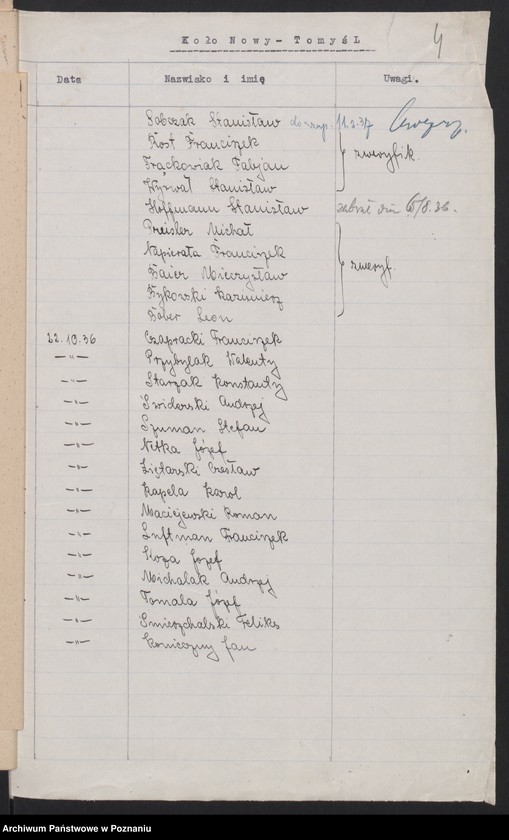 4
Koło Nowy-Tomyśl
Data Nazwisko i imię Uwagi.
Sobczak Stanisław 11.2.37
Rost Franciszek
Frąckowiak Fabjan zweryfik.
Wyrwał Stanisław
Hoffmann Stanisław zabrał dn. 6/8.36.
Preisler Michał
Napierała Franciszek
Baier Mieczysław zweryf.
Bykowski Kazimierz
Bober Leon
22.10.36 Czapracki Franciszek
—"— Przybylak Walenty
—"— Starzak Konstanty
—"— Świderski Andrzej
—"— Szuman Stefan
—"— Nitka Józef
—"— Ziętarski Czesław
—"— Kapela Karol
—"— Maciejewski Roman
—"— Luftman Franciszek
—"— Kloza Józef
—"— Michalak Andrzej
—"— Tomala Józef
—"— Śmierzchalski Feliks
—"— Konieczny Jan
Archiwum Państwowe w Poznaniu